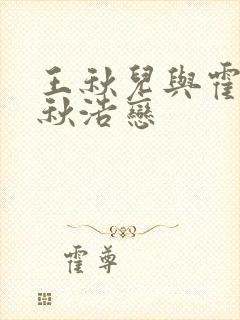 王秋兒與霍
秋浩戀
霍尊